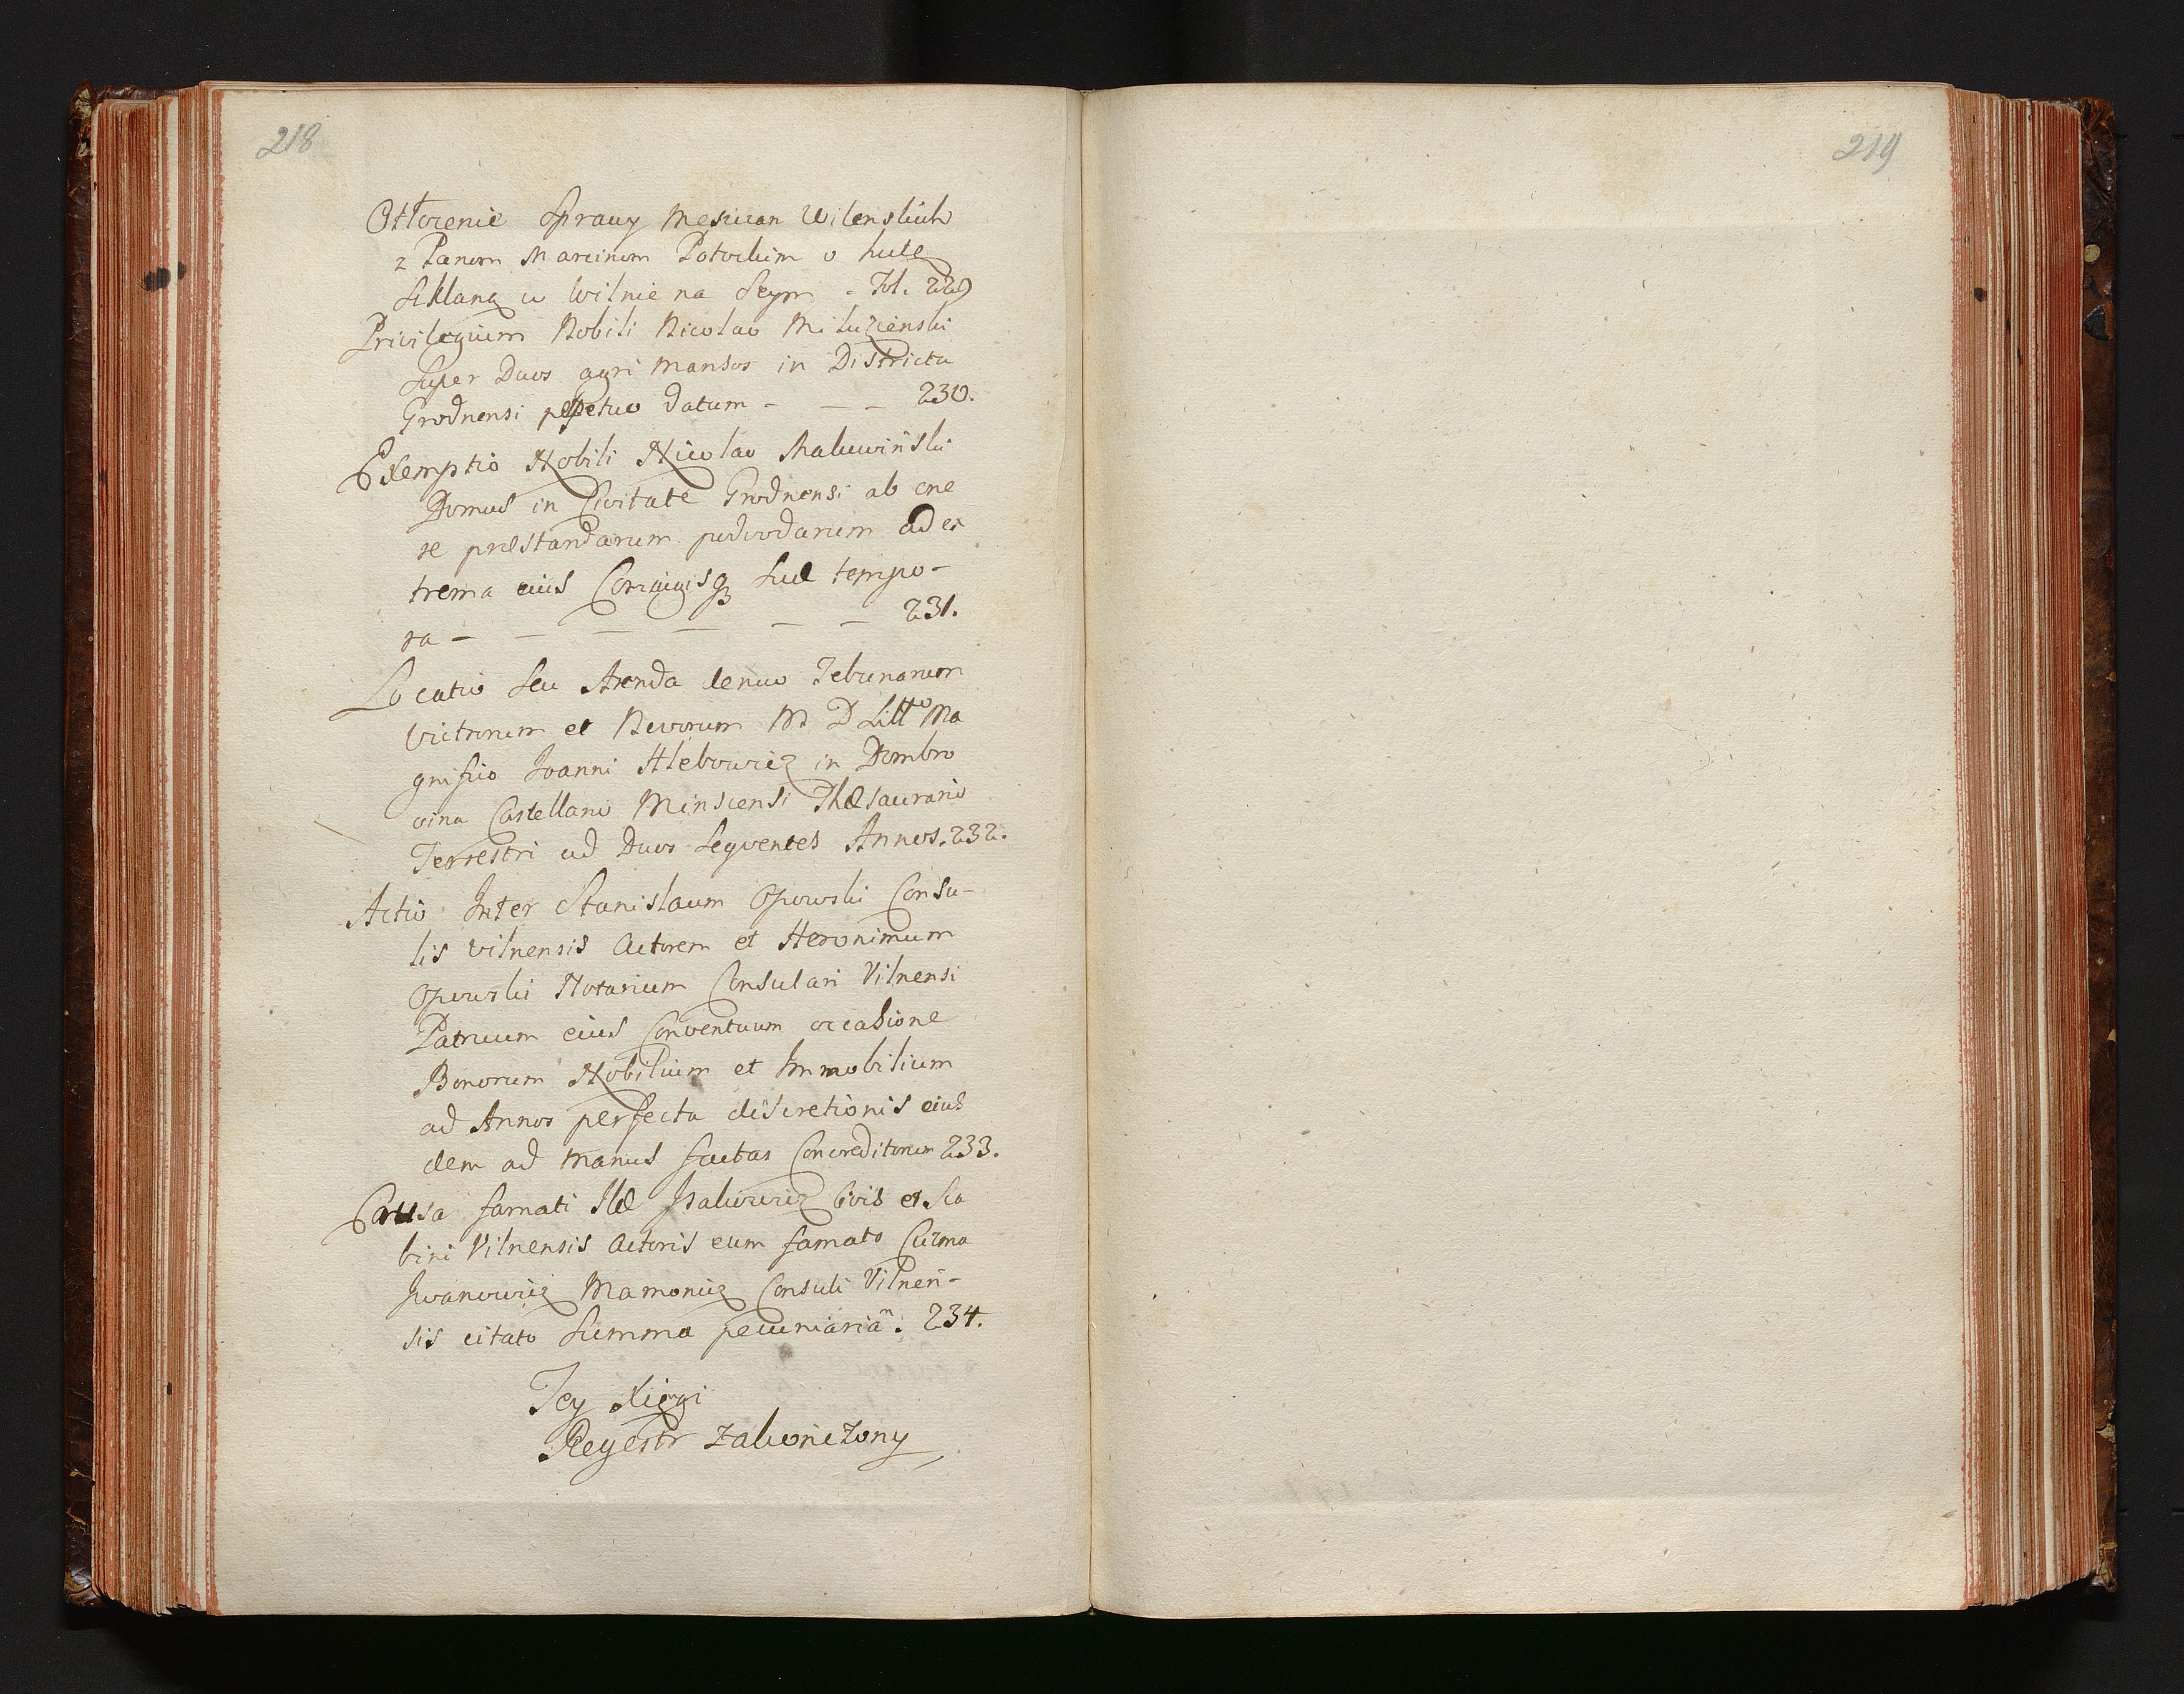 218
219
Otłorenie sprawy Mesczan Wilenskich
z Panem Marcinem Potockim o hutę
Szklaną w Wilnie na Seym - Fol. 229
Privilegium Nobili Nicolao
super Duos agri mansos in Districtu
Grodnensi ppetuo datum - - - 230.
Exemptio Nobili Nicolao Makowiński
Domus in Civitate Grodnensi ab one
re præstandarum podwodarum ad ex
trema eius Conjugisq3 suæ tempo-
ra - - - - - - 231.
Locatio seu Arenda denuo Tebunarum
vietnorum et Nevorum M D Litt Ma
gnifico Joanni Hlebowicz in Dombro
wina Castellano Minscensi Thæsaurario
Terrestri ad Duos sequentes Annos. 232.
Actio Inter Stanislaum Opowski Consu-
lis Vilnensis Actorem et Heronimum
Opowski Notarium Consulari Vilnensi
Patruum eius Conventuum occasione
Bonorum Mobilium et Immobilium
ad Annos perfecta discretionis eius
dem ad manus factas Concreditorum 233.
Causa famati Ilæ Isakowicz Civis et Sca
bini Vilnensis Actoris cum famato Cuzma
Iwanowicz Mamonicz Consuli Vilnen-
sis citato summa pecuniaria. 234.
Tey Xięgi
Regestr zakończony